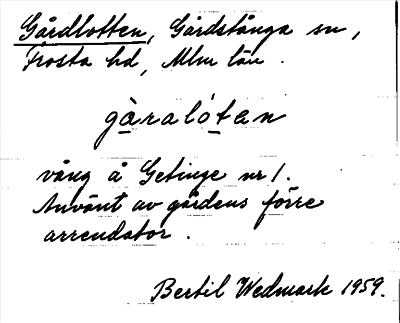 Gårdlotten, Gårdstånga sn,
Frosta hd, Mlm län.
gàralótan
vång å Getinge nr 1.
Använt av gårdens förre
arrendator.
Bertil Wedmark 1959.